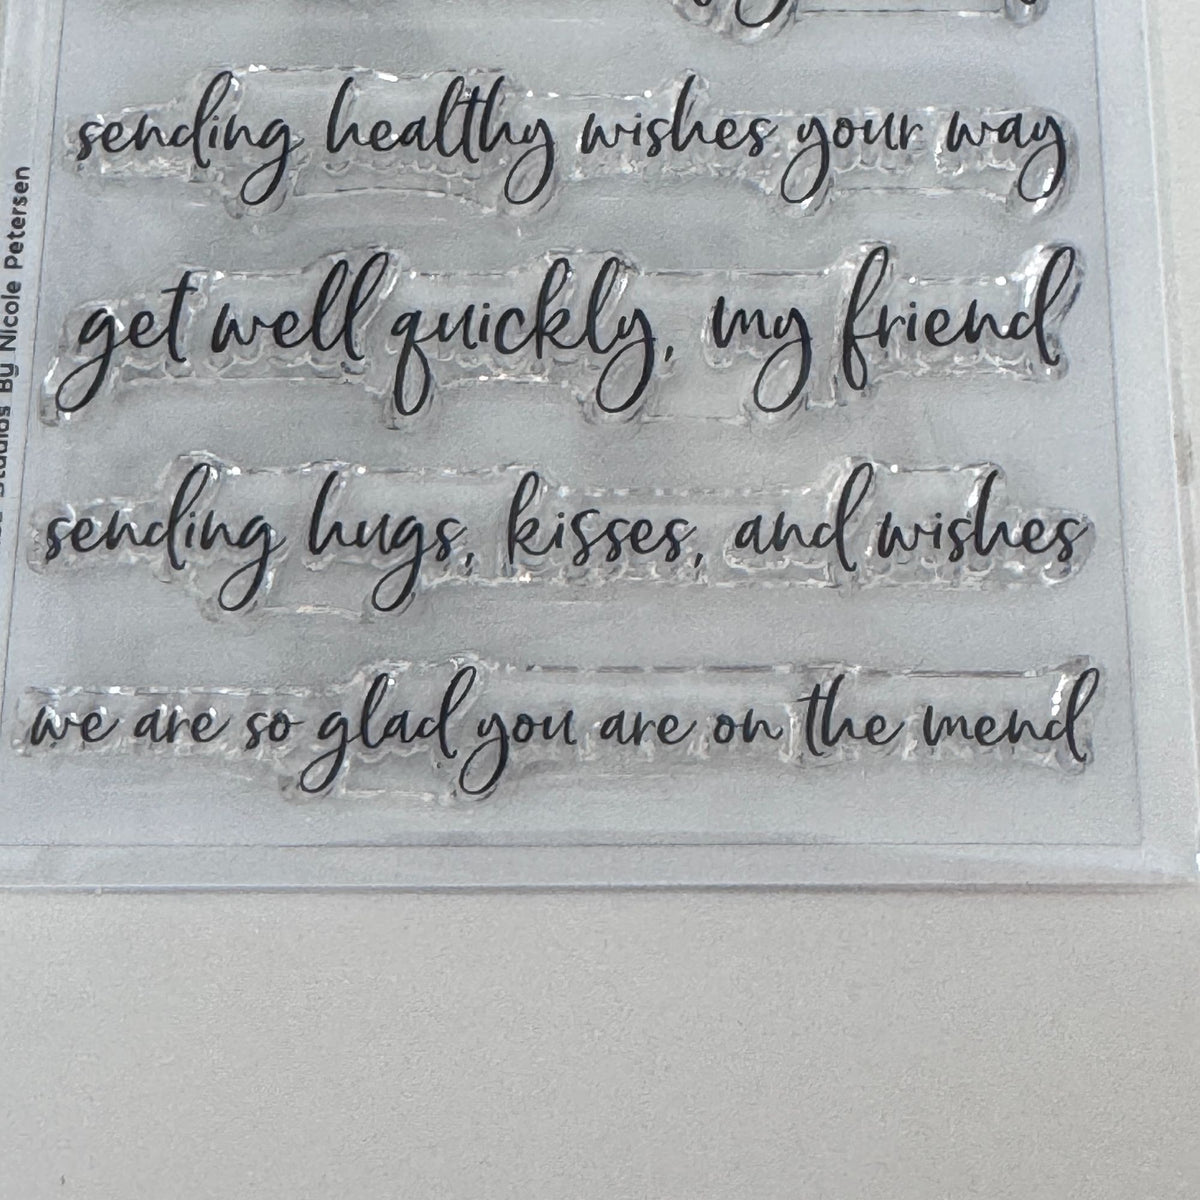 sending healthy wishes your way
get well quickly, my friend
sending hugs, kisses, and wishes
we are so glad you are on the mend
Studios By Nicole Petersen